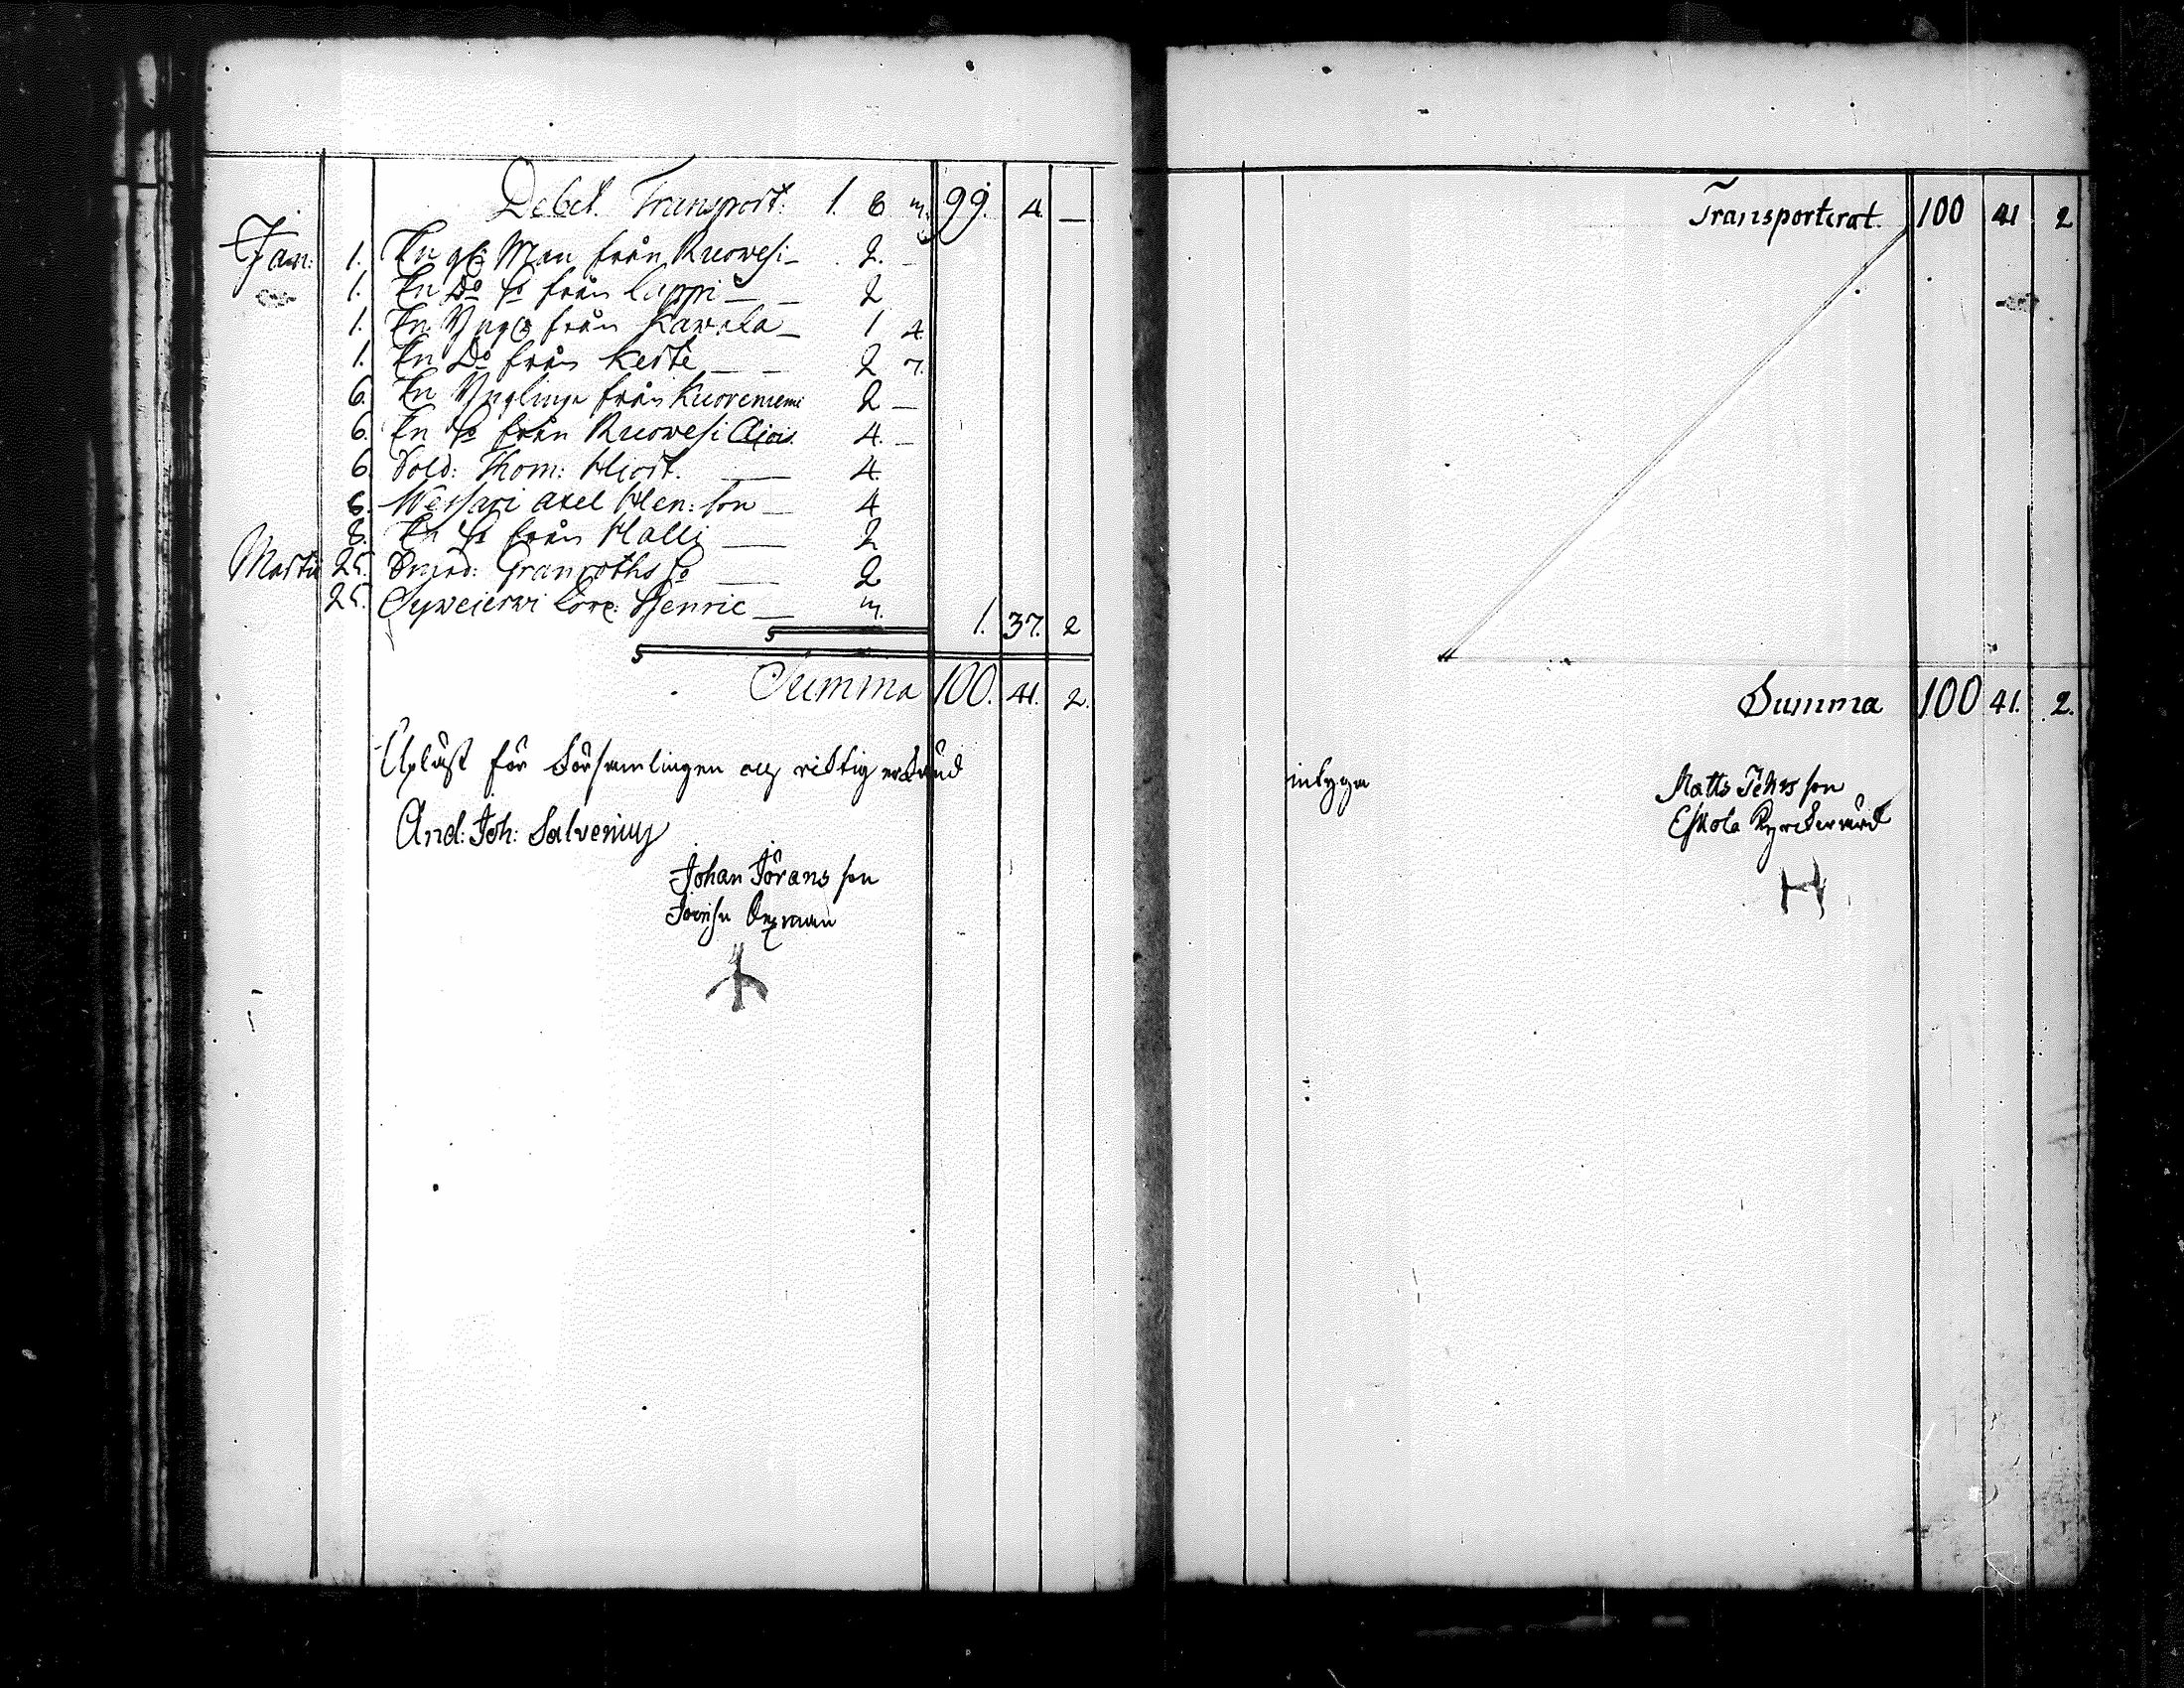 Debet. Transport. 1. 6 99. 4. —
Jan: 1. En gl: Man från Ruowesi — 2. —
1. En Do So från Lappi — — 2
1. En Yngl: från Kawala — 1 4
1. En Do från Kerte — — 2
6. En Ynglinge från Kuoreniemi 2 —
6. En So från Ruowesi 4. —
6. Sold: Thom: Hiort. — 4.
6. Wessari Axel Hen: Son — 4
8. En So från Halli — 2
Martii 25. Granroths So — 2
25. Syweierwi Henric — 1. 37. 2
Summa 100. 41. 2.
Upläst för Församlingen och richtig erkänd
And: Joh: Salvenius
Johan Jörans son
Transporterat. 100 41 2
Summa 100 41. 2.
intyga
Matts son
Eskola Kyrckiowärd
H